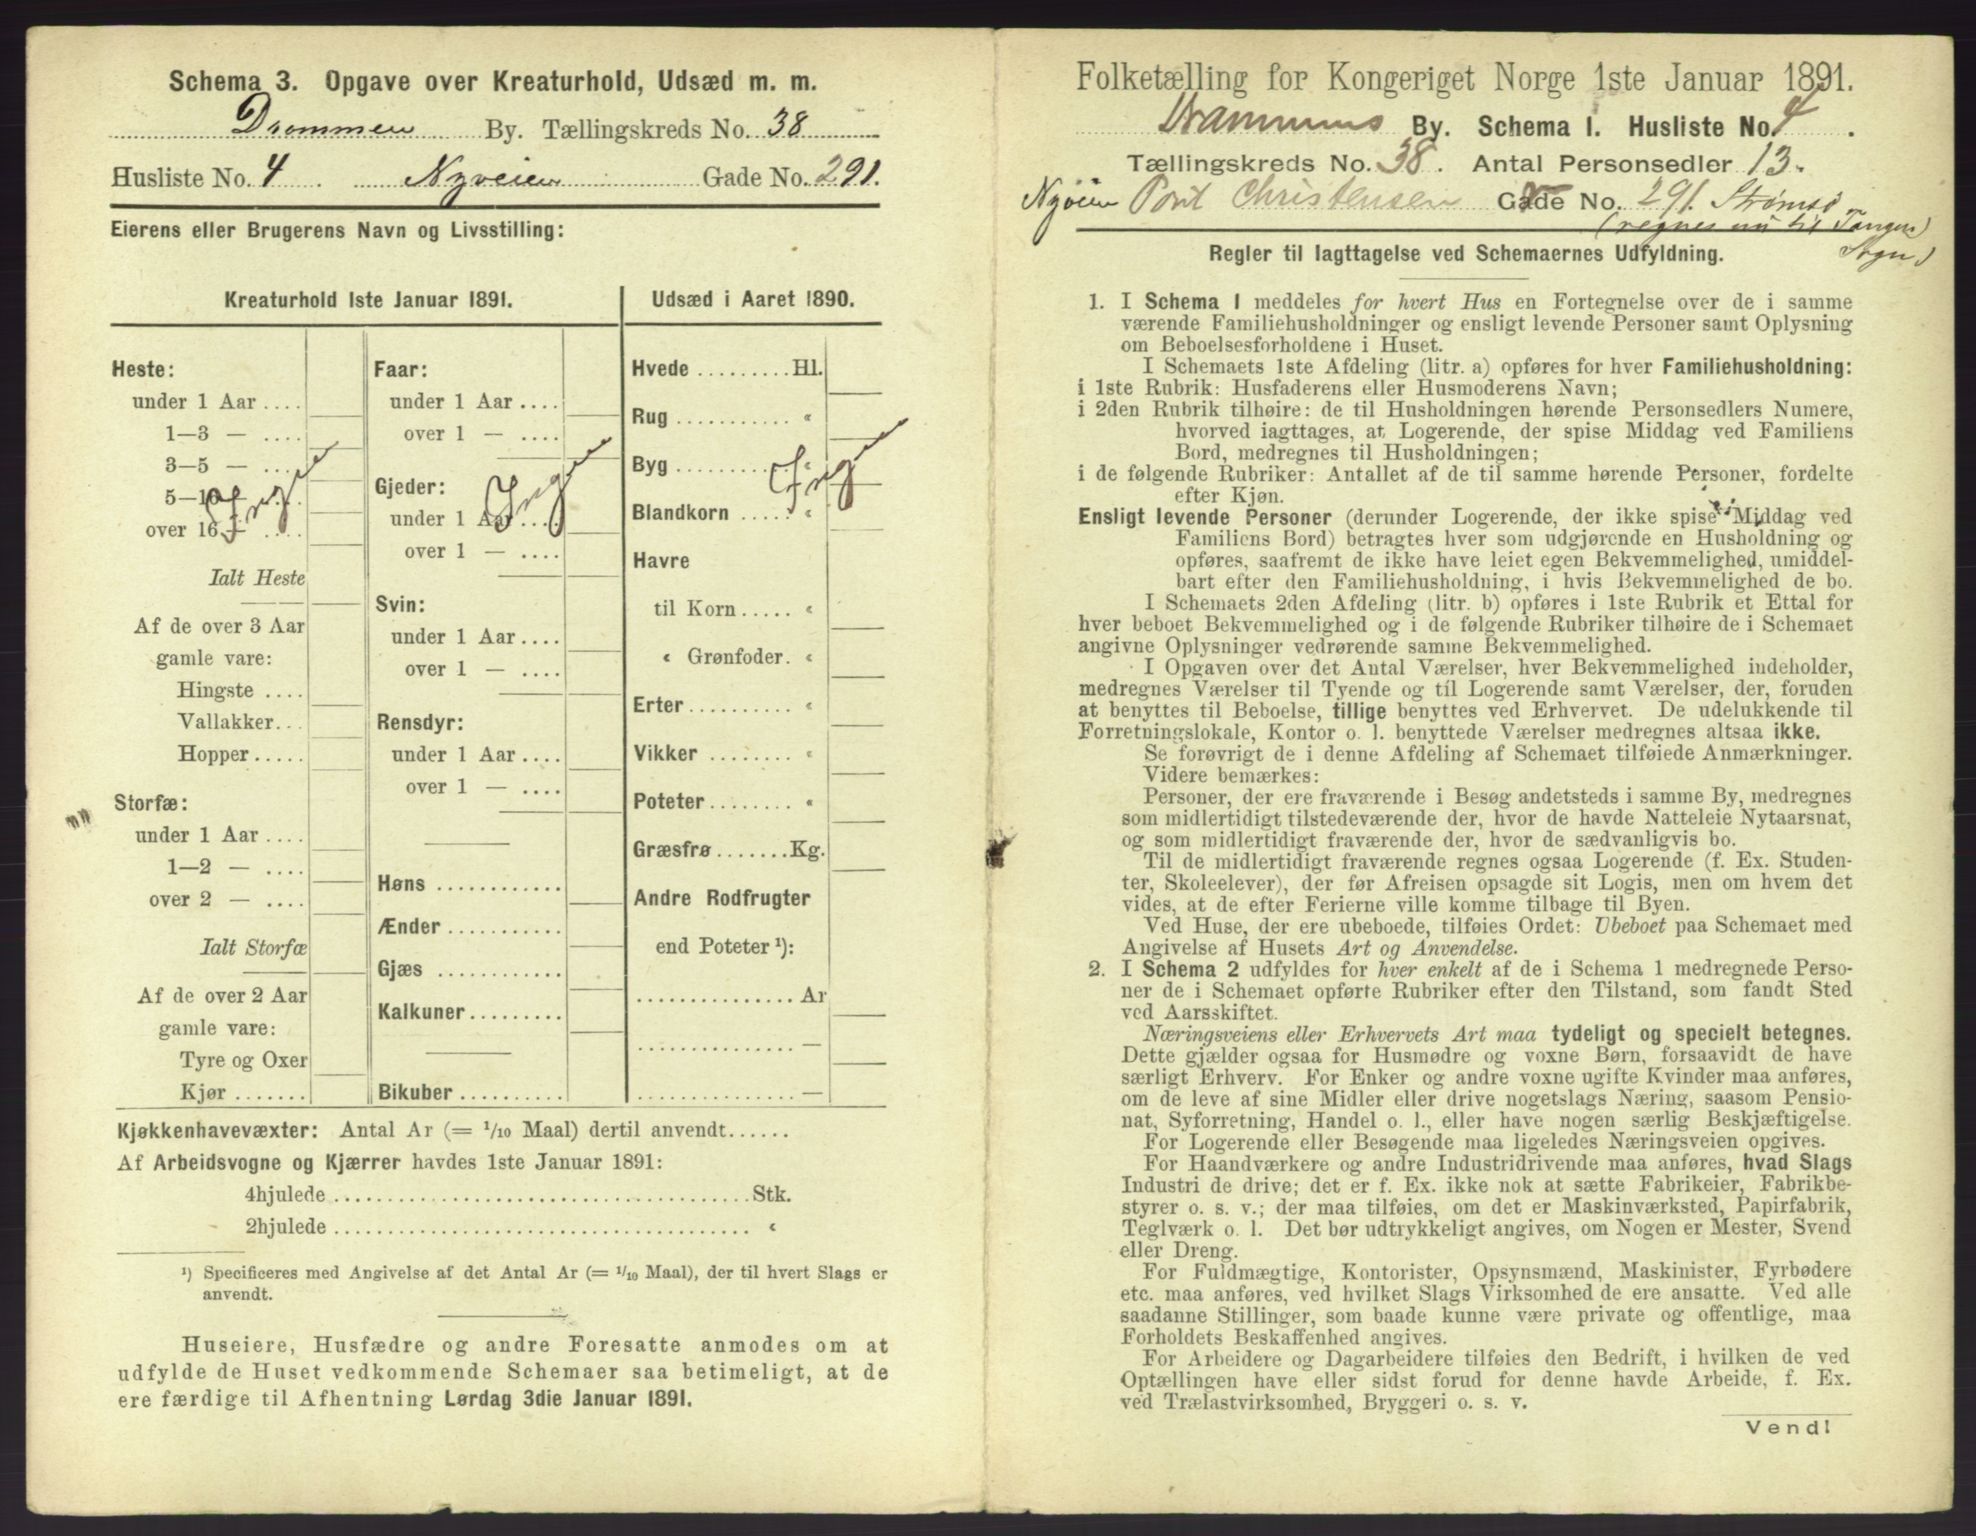 Schema 3. Opgave over Kreaturhold, Udsæd m. m.
Drammen By. Tællingskreds No. 38
Husliste No. 4 Nyveien Gade No. 291.
Eierens eller Brugerens Navn og Livsstilling:
Kreaturhold 1ste Januar 1891.
Heste:
under 1 Aar ....
1—3 — ....
3—5 — ....
5—16 — ....
over 16 — ....
Inge
Ialt Heste
Af de over 3 Aar
gamle vare:
Hingste ....
Vallakker...
Hopper.....
Storfæ:
under 1 Aar ....
1—2 — ....
over 2 — ....
Ialt Storfæ
Af de over 2 Aar
gamle vare:
Tyre og Oxer
Kjør .......
Faar:
under 1 Aar ....
over 1 — ....
Gjeder:
under 1 Aar ....
Inge
over 1 — ....
Svin:
under 1 Aar ....
over 1 — ....
Rensdyr:
under 1 Aar ....
over 1 — ....
Høns ............
Ænder ...........
Gjæs ............
Kalkuner.........
Bikuber ..........
Udsæd i Aaret 1890.
Hvede .........Hl.
Rug ........... «
Byg ........... «
Inge
Blandkorn ..... «
Havre
til Korn..... «
« Grønfoder. «
Erter.......... «
Vikker ........ «
Poteter........ «
Græsfrø .......Kg.
Andre Rodfrugter
end Poteter ¹):
...............Ar
............... —
............... —
Kjøkkenhavevæxter: Antal Ar (= 1/10 Maal) dertil anvendt......
Af Arbeidsvogne og Kjærrer havdes 1ste Januar 1891:
4hjulede ........................................Stk.
2hjulede ........................................ «
¹) Specificeres med Angivelse af det Antal Ar (= 1/10 Maal), der til hvert Slags er
anvendt.
Huseiere, Husfædre og andre Foresatte anmodes om at
udfylde de Huset vedkommende Schemaer saa betimeligt, at de
ere færdige til Afhentning Lørdag 3die Januar 1891.
Folketælling for Kongeriget Norge 1ste Januar 1891.
Drammens By. Schema 1. Husliste No. 4.
Tællingskreds No. 38. Antal Personsedler 13.
Nyveien Port Christensen Gade No. 291 Strømsø
(regnes nu til Tangen
Sogn)
Regler til Iagttagelse ved Schemaernes Udfyldning.
1. I Schema 1 meddeles for hvert Hus en Fortegnelse over de i samme
værende Familiehusholdninger og ensligt levende Personer samt Oplysning
om Beboelsesforholdene i Huset.
I Schemaets 1ste Afdeling (litr. a) opføres for hver Familiehusholdning:
i 1ste Rubrik: Husfaderens eller Husmoderens Navn;
i 2den Rubrik tilhøire: de til Husholdningen hørende Personsedlers Numere,
hvorved iagttages, at Logerende, der spise Middag ved Familiens
Bord, medregnes til Husholdningen;
i de følgende Rubriker: Antallet af de til samme hørende Personer, fordelte
efter Kjøn.
Ensligt levende Personer (derunder Logerende, der ikke spise Middag ved
Familiens Bord) betragtes hver som udgjørende en Husholdning og
opføres, saafremt de ikke have leiet egen Bekvemmelighed, umiddel-
bart efter den Familiehusholdning, i hvis Bekvemmelighed de bo.
I Schemaets 2den Afdeling (litr. b) opføres i 1ste Rubrik et Ettal for
hver beboet Bekvemmelighed og i de følgende Rubriker tilhøire de i Schemaet
angivne Oplysninger vedrørende samme Bekvemmelighed.
I Opgaven over det Antal Værelser, hver Bekvemmelighed indeholder,
medregnes Værelser til Tyende og til Logerende samt Værelser, der, foruden
at benyttes til Beboelse, tillige benyttes ved Erhvervet. De udelukkende til
Forretningslokale, Kontor o. l. benyttede Værelser medregnes altsaa ikke.
Se forøvrigt de i denne Afdeling af Schemaet tilføiede Anmærkninger.
Videre bemærkes:
Personer, der ere fraværende i Besøg andetsteds i samme By, medregnes
som midlertidigt tilstedeværende der, hvor de havde Natteleie Nytaarsnat,
og som midlertidigt fraværende der, hvor de sædvanligvis bo.
Til de midlertidigt fraværende regnes ogsaa Logerende (f. Ex. Studen-
ter, Skoleelever), der før Afreisen opsagde sit Logis, men om hvem det
vides, at de efter Ferierne ville komme tilbage til Byen.
Ved Huse, der ere ubeboede, tilføies Ordet: Ubeboet paa Schemaet med
Angivelse af Husets Art og Anvendelse.
2. I Schema 2 udfyldes for hver enkelt af de i Schema 1 medregnede Perso-
ner de i Schemaet opførte Rubriker efter den Tilstand, som fandt Sted
ved Aarsskiftet.
Næringsveiens eller Erhvervets Art maa tydeligt og specielt betegnes.
Dette gjælder ogsaa for Husmødre og voxne Børn, forsaavidt de have
særligt Erhverv. For Enker og andre voxne ugifte Kvinder maa anføres,
om de leve af sine Midler eller drive nogetslags Næring, saasom Pensio-
nat, Syforretning, Handel o. l., eller have nogen særlig Beskjæftigelse.
For Logerende eller Besøgende maa ligeledes Næringsveien opgives.
For Haandværkere og andre Industridrivende maa anføres, hvad Slags
Industri de drive; det er f. Ex. ikke nok at sætte Fabrikeier, Fabrikbe-
styrer o. s. v.; der maa tilføies, om det er Maskinværksted, Papirfabrik,
Teglværk o. l. Det bør udtrykkeligt angives, om Nogen er Mester, Svend
eller Dreng.
For Fuldmægtige, Kontorister, Opsynsmænd, Maskinister, Fyrbødere
etc. maa anføres, ved hvilket Slags Virksomhed de ere ansatte. Ved alle
saadanne Stillinger, som baade kunne være private og offentlige, maa
Forholdets Beskaffenhed angives.
For Arbeidere og Dagarbeidere tilføies den Bedrift, i hvilken de ved
Optællingen have eller sidst forud for denne havde Arbeide, f. Ex.
ved Trælastvirksomhed, Bryggeri o. s. v.
Vend!